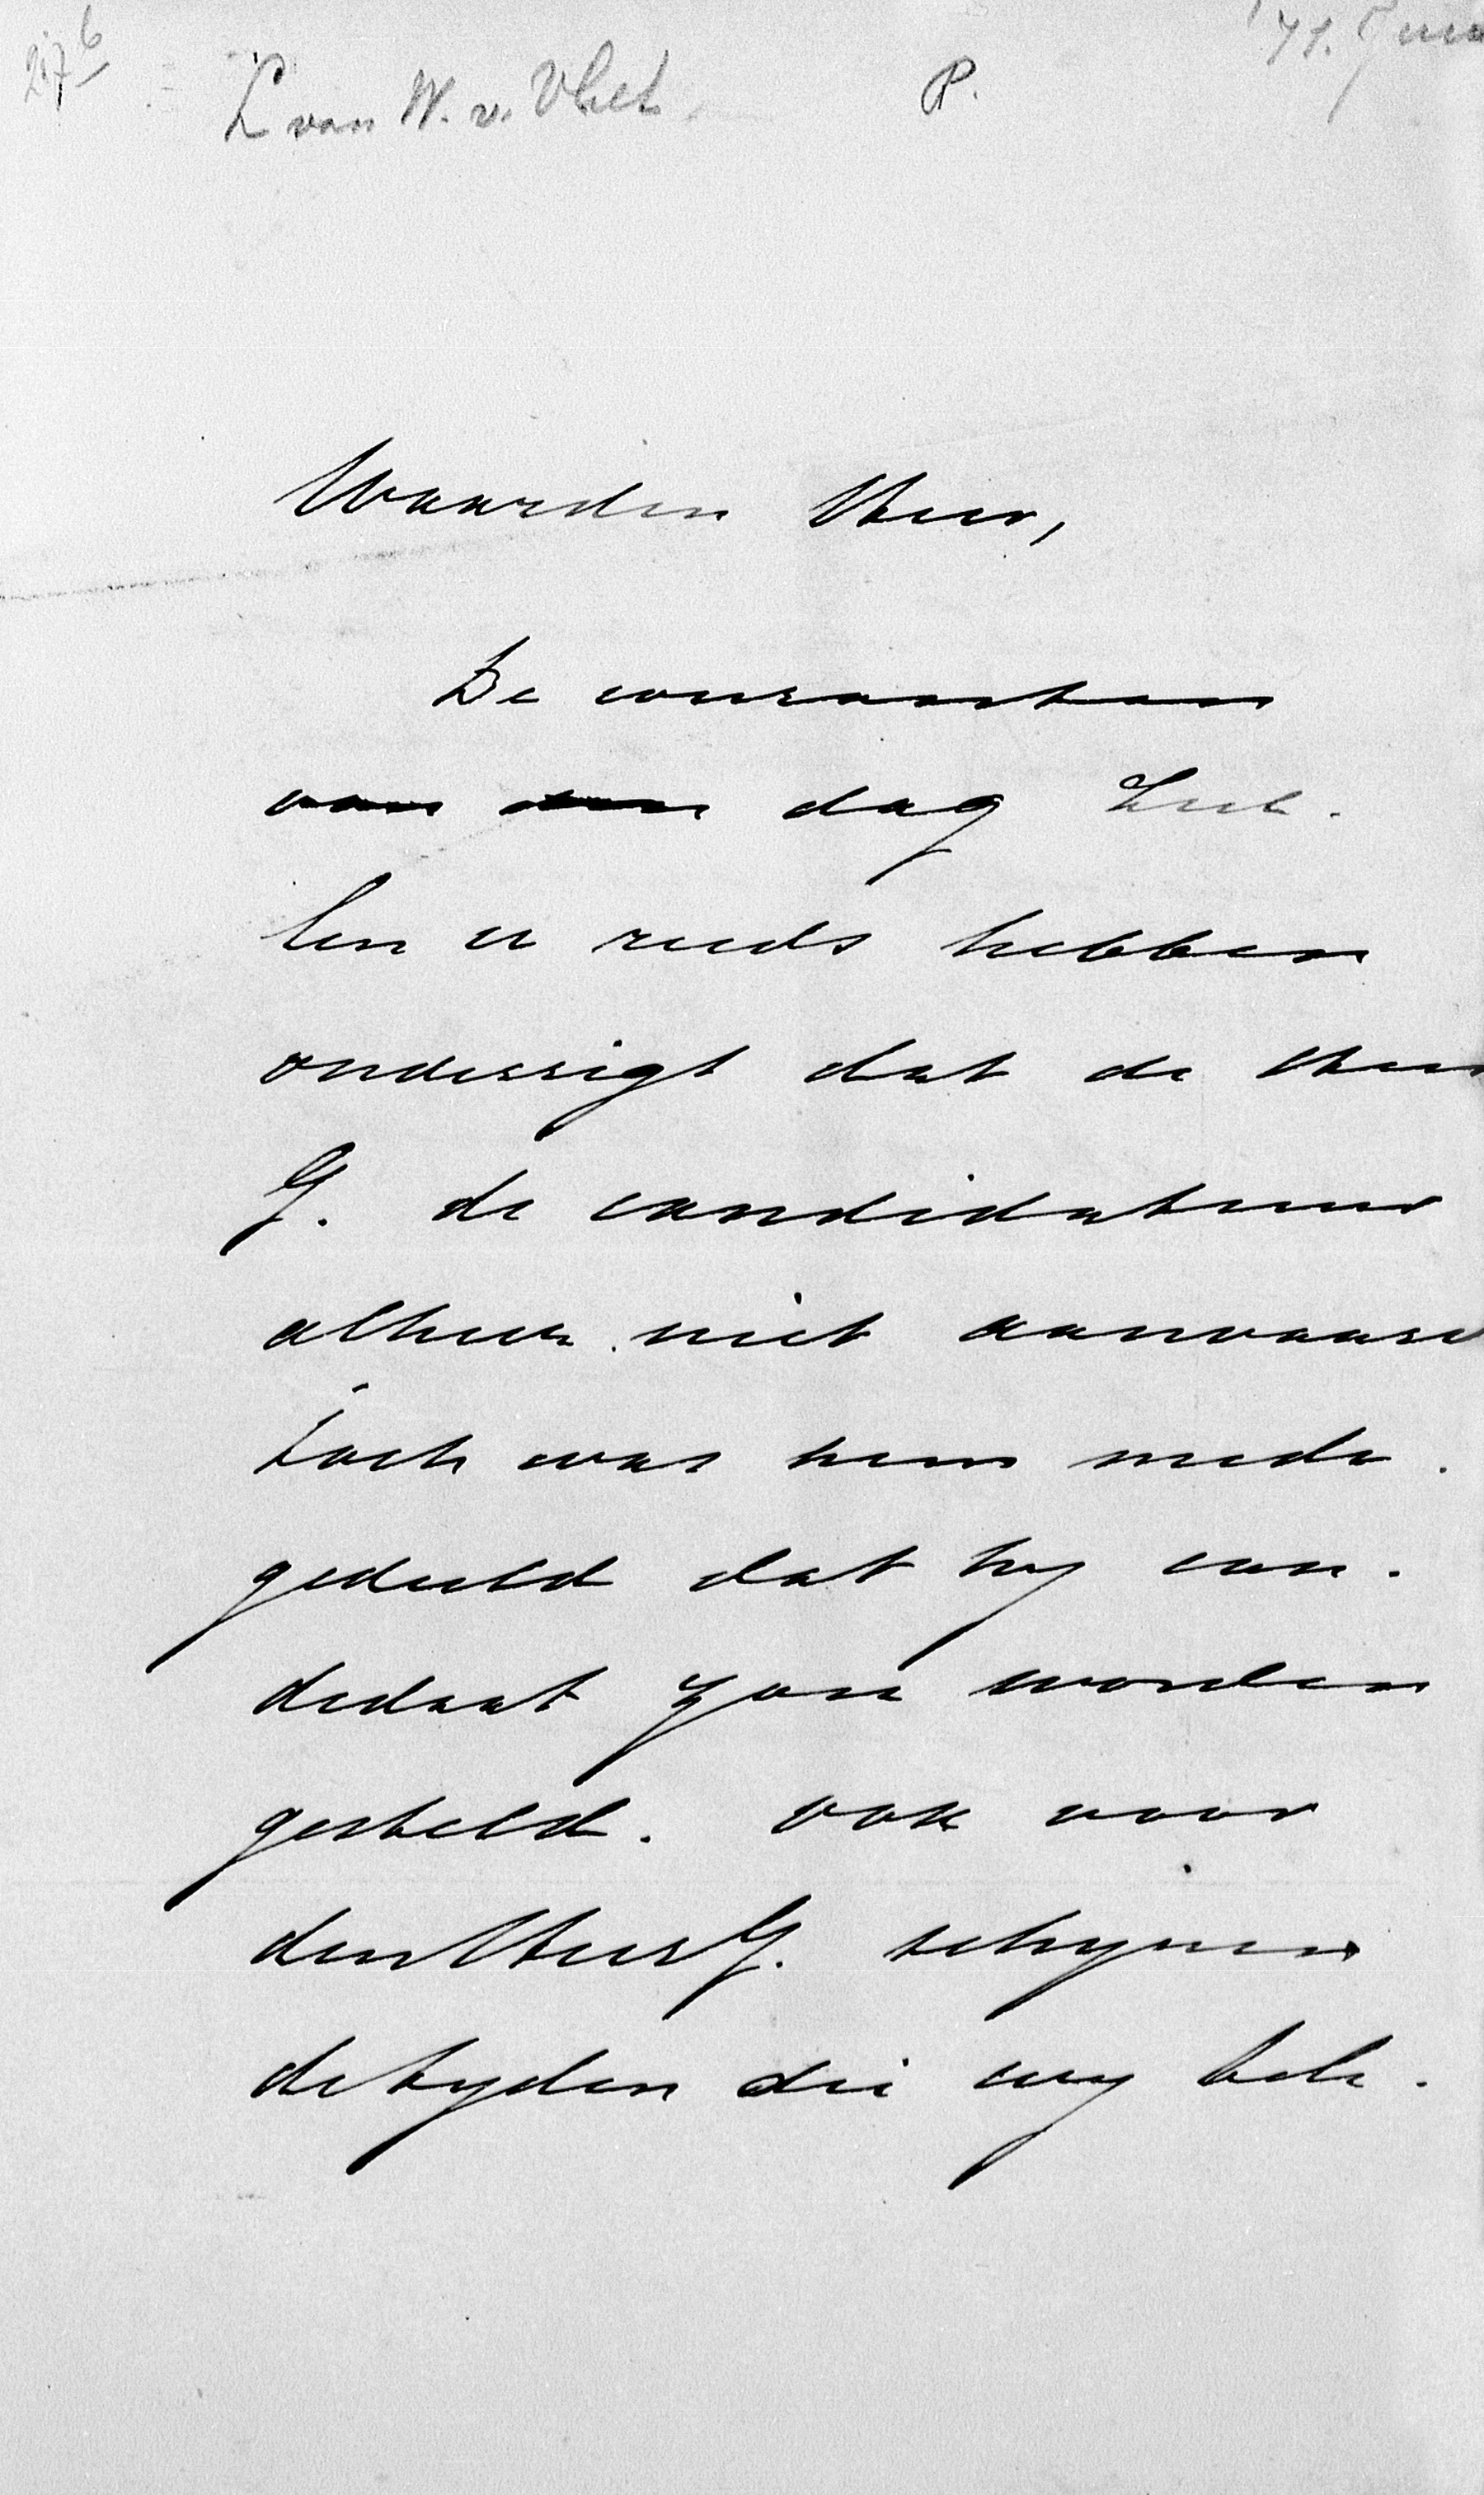 27b
L van W. v. Vliet. P. '71. Juni
Waarden Heer,
De couranten
van den dag zul-
len u reeds hebben
onderrigt dat de Heer
G. de candidatuur
alhier niet aanvaard
toch was hem mede-
gedeeld dat hy can-
didaat zou worden
gesteld. ook voor
den Heer G. schynen
de tyden die wy bele-